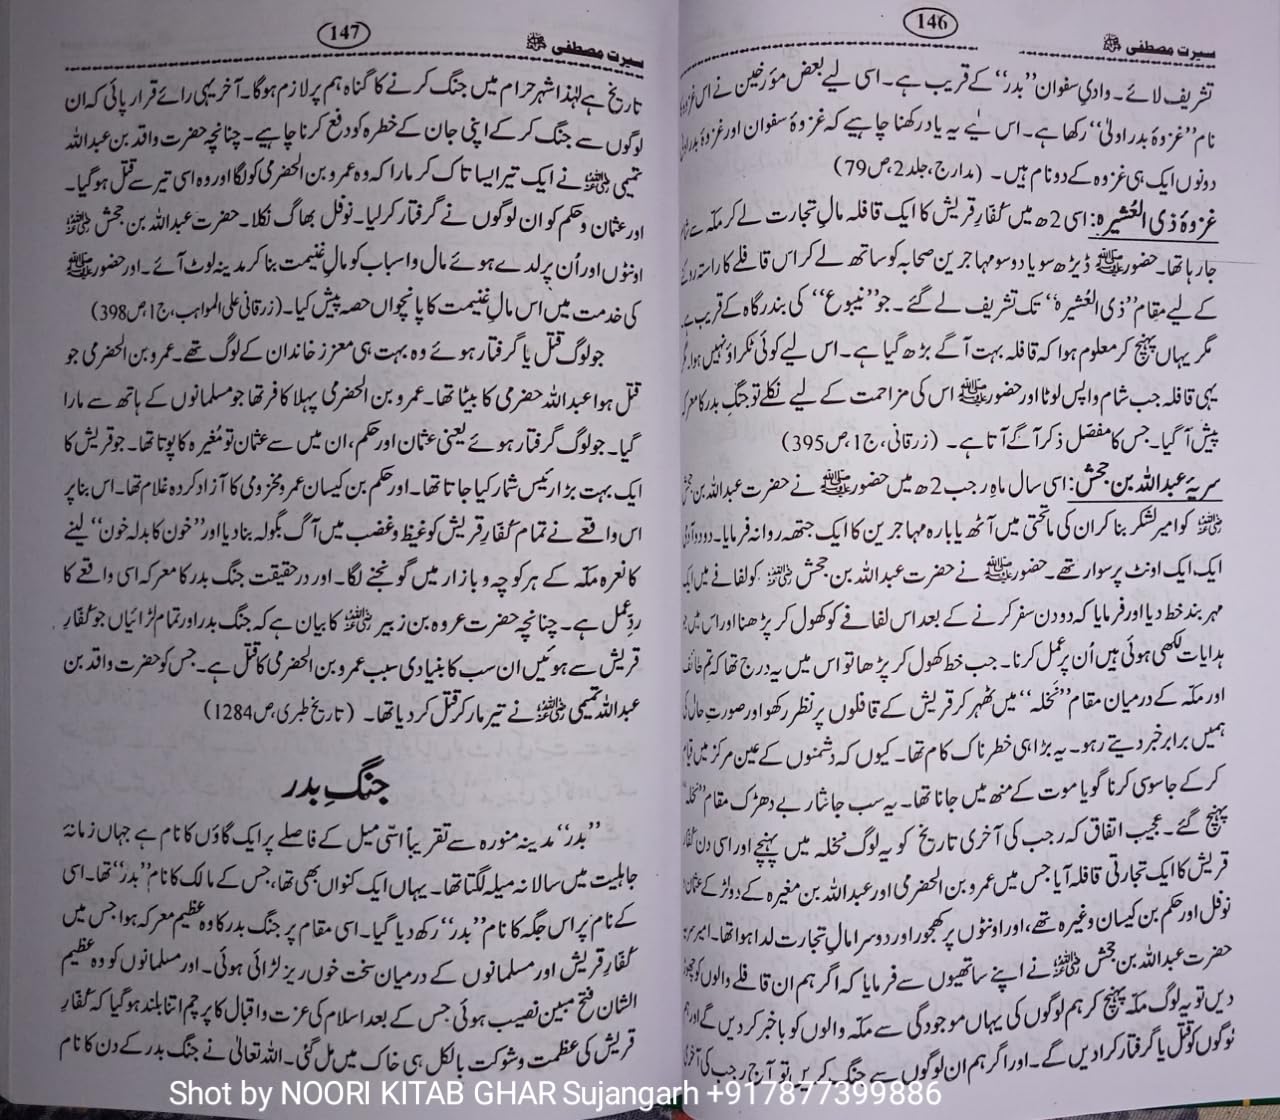 146
سیرت مصطفی ﷺ
تشریف لائے۔ وادیِ سفوان ”بدر“ کے قریب ہے۔ اسی لیے بعض مؤرخین نے اس غزوہ
نام ”غزوۂ بدر اولیٰ“ رکھا ہے۔ اس لیے یہ یاد رکھنا چاہیے کہ غزوۂ سفوان اور غزوۂ بدر
دونوں ایک ہی غزوہ کے دو نام ہیں۔ (مدارج، جلد 2، ص 79)
غزوۂ ذی العُشیرہ: اسی 2ھ میں کفارِ قریش کا ایک قافلہ مالِ تجارت لے کر مکہ سے
جا رہا تھا۔ حضور ﷺ ڈیڑھ سو یا دو سو مہاجرین صحابہ کو ساتھ لے کر اس قافلے کا راستہ
کے لیے مقام ”ذی العُشیرہ“ تک تشریف لے گئے۔ جو ”ینبوع“ کی بندرگاہ کے قریب ہے
مگر یہاں پہنچ کر معلوم ہوا کہ قافلہ بہت آگے بڑھ گیا ہے۔ اس لیے کوئی ٹکراؤ نہیں ہوا۔ مگر
یہی قافلہ جب شام واپس لوٹا اور حضور ﷺ اس کی مزاحمت کے لیے نکلے تو جنگِ بدر کا معرکہ
پیش آ گیا۔ جس کا مفصّل ذکر آگے آتا ہے۔ (زرقانی، ج 1 ص 395)
سریہ عبداللہ بن جحش: اسی سال ماہِ رجب 2ھ میں حضور ﷺ نے حضرت عبداللہ بن جحش
رضی اللہ عنہ کو امیرِ لشکر بنا کر ان کی ماتحتی میں آٹھ یا بارہ مہاجرین کا ایک جتھہ روانہ فرمایا۔ دو دو آدمی
ایک ایک اونٹ پر سوار تھے۔ حضور ﷺ نے حضرت عبداللہ بن جحش رضی اللہ عنہ کو لفافے میں ایک
مہر بند خط دیا اور فرمایا کہ دو دن سفر کرنے کے بعد اس لفافے کو کھول کر پڑھنا اور اس میں جو
ہدایات لکھی ہوئی ہیں اُن پر عمل کرنا۔ جب خط کھول کر پڑھا تو اس میں یہ درج تھا کہ تم طائف
اور مکّہ کے درمیان مقام ”نخلہ“ میں ٹھہر کر قریش کے قافلوں پر نظر رکھو اور صورتِ حال کی
ہمیں برابر خبر دیتے رہو۔ یہ بڑا ہی خطرناک کام تھا۔ کیوں کہ دشمنوں کے عین مرکز میں قیام
کر کے جاسوسی کرنا گویا موت کے منھ میں جانا تھا۔ یہ سب جاں نثار بے دھڑک مقام ”نخلہ“
پہنچ گئے۔ عجیب اتفاق کہ رجب کی آخری تاریخ کو یہ لوگ نخلہ میں پہنچے اور اسی دن کفارِ
قریش کا ایک تجارتی قافلہ آیا جس میں عمرو بن الحضرمی اور عبداللہ بن مغیرہ کے دو لڑکے عثمان و
نوفل اور حکم بن کیسان وغیرہ تھے، اور اونٹوں پر کھجور اور دوسرا مالِ تجارت لدا ہوا تھا۔ امیرِ سریہ
حضرت عبداللہ بن جحش رضی اللہ عنہ نے اپنے ساتھیوں سے فرمایا کہ اگر ہم ان قافلے والوں کو چھوڑ
دیں تو یہ لوگ مکّہ پہنچ کر ہم لوگوں کی یہاں موجودگی سے مکّہ والوں کو باخبر کر دیں گے اور ہم
لوگوں کو قتل یا گرفتار کرا دیں گے۔ اور اگر ہم ان لوگوں سے جنگ کریں تو آج رجب کی آخری
147
سیرت مصطفی ﷺ
تاریخ ہے لہٰذا شہرِ حرام میں جنگ کرنے کا گناہ ہم پر لازم ہوگا۔ آخر یہی رائے قرار پائی کہ ان
لوگوں سے جنگ کر کے اپنی جان کے خطرہ کو دفع کرنا چاہیے۔ چنانچہ حضرت واقد بن عبداللہ
تمیمی رضی اللہ عنہ نے ایک تیر ایسا تاک کر مارا کہ وہ عمرو بن الحضرمی کو لگا اور وہ اسی تیر سے قتل ہو گیا۔
اور عثمان و حکم کو ان لوگوں نے گرفتار کر لیا۔ نوفل بھاگ نکلا۔ حضرت عبداللہ بن جحش رضی اللہ عنہ
اونٹوں اور اُن پر لدے ہوئے مال و اسباب کو مالِ غنیمت بنا کر مدینہ لوٹ آئے۔ اور حضور ﷺ
کی خدمت میں اس مالِ غنیمت کا پانچواں حصہ پیش کیا۔ (زرقانی علی المواہب، ج 1، ص 398)
جو لوگ قتل یا گرفتار ہوئے وہ بہت ہی معزز خاندان کے لوگ تھے۔ عمرو بن الحضرمی جو
قتل ہوا عبداللہ حضرمی کا بیٹا تھا۔ عمرو بن الحضرمی پہلا کافر تھا جو مسلمانوں کے ہاتھ سے مارا
گیا۔ جو لوگ گرفتار ہوئے یعنی عثمان اور حکم، ان میں سے عثمان تو مُغیرہ کا پوتا تھا۔ جو قریش کا
ایک بہت بڑا رئیس شمار کیا جاتا تھا۔ اور حکم بن کیسان عمرو مخزومی کا آزاد کردہ غلام تھا۔ اس بنا پر
اس واقعے نے تمام کفارِ قریش کو غیظ و غضب میں آگ بگولہ بنا دیا اور ”خون کا بدلہ خون“ لینے
کا نعرہ مکّہ کے ہر کوچہ و بازار میں گونجنے لگا۔ اور درحقیقت جنگ بدر کا معرکہ اسی واقعے کا
ردِ عمل ہے۔ چنانچہ حضرت عروہ بن زبیر رضی اللہ عنہ کا بیان ہے کہ جنگ بدر اور تمام لڑائیاں جو کفارِ
قریش سے ہوئیں ان سب کا بنیادی سبب عمرو بن الحضرمی کا قتل ہے۔ جس کو حضرت واقد بن
عبداللہ تمیمی رضی اللہ عنہ نے تیر مار کر قتل کر دیا تھا۔ (تاریخ طبری، ص 1284)
جنگِ بدر
”بدر“ مدینہ منورہ سے تقریباً اسّی میل کے فاصلے پر ایک گاؤں کا نام ہے جہاں زمانۂ
جاہلیت میں سالانہ میلہ لگتا تھا۔ یہاں ایک کنواں بھی تھا، جس کے مالک کا نام ”بدر“ تھا۔ اسی
کے نام پر اس جگہ کا نام ”بدر“ رکھ دیا گیا۔ اسی مقام پر جنگ بدر کا وہ عظیم معرکہ ہوا جس میں
کفارِ قریش اور مسلمانوں کے درمیان سخت خوں ریز لڑائی ہوئی۔ اور مسلمانوں کو وہ عظیم
الشان فتح مبین نصیب ہوئی جس کے بعد اسلام کی عزت و اقبال کا پرچم اتنا بلند ہو گیا کہ کفارِ
قریش کی عظمت و شوکت بالکل ہی خاک میں مل گئی۔ اللہ تعالیٰ نے جنگ بدر کے دن کا نام
Shot by NOORI KITAB GHAR Sujangarh +917877399886